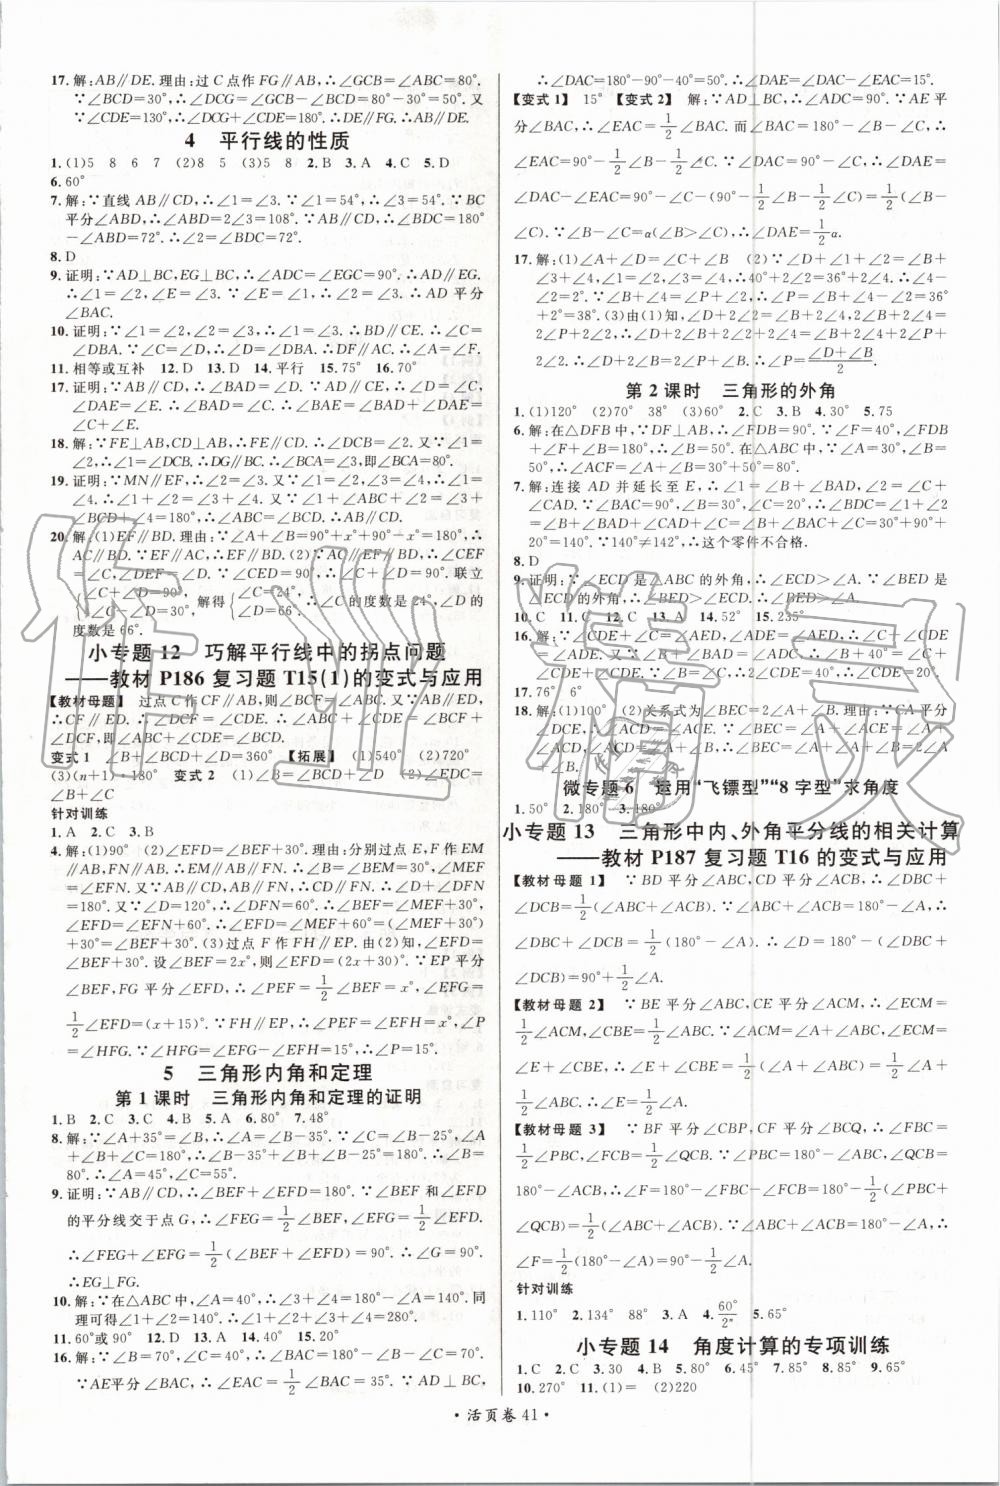 17.解:AB∥DE.理由:过C点作FG∥AB,∴∠GCB=∠ABC=80°.
∵∠BCD=30°,∴∠DCG=∠GCB-∠BCD=80°-30°=50°.又
∵∠CDE=130°,∴∠DCG+∠CDE=180°.∴DE∥FG.∴AB∥DE.
4 平行线的性质
1.(1)5 8 6 7 (2)8 5 (3)5 8 2.B 3.A 4.C 5.D
6.60°
7.解:∵直线AB∥CD,∴∠1=∠3.∵∠1=54°,∴∠3=54°.∵BC
平分∠ABD,∴∠ABD=2∠3=108°.∵AB∥CD,∴∠BDC=180°
-∠ABD=72°.∴∠2=∠BDC=72°.
8.D
9.证明:∵AD⊥BC,EG⊥BC,∴∠ADC=∠EGC=90°.∴AD∥EG.
∴∠1=∠2,∠E=∠3.∵∠E=∠1,∴∠2=∠3.∴AD平分
∠BAC.
10.证明:∵∠1=∠2,∠2=∠3,∴∠1=∠3.∴BD∥CE.∴∠C=
∠DBA.∵∠C=∠D,∴∠D=∠DBA.∴DF∥AC.∴∠A=∠F.
11.相等或互补 12.D 13.D 14.平行 15.75° 16.70°
17.证明:∵AB∥CD,∴∠BAD=∠D.∵AD∥CE,∴∠D=∠C,
∠DAE=∠E.∴∠BAD=∠C.∴∠BAE=∠BAD+∠DAE=
∠C+∠E.
18.解:∵FE⊥AB,CD⊥AB,∴FE∥CD.∴∠DCB=∠2.又∵∠1=
∠2,∴∠1=∠DCB.∴DG∥BC.∴∠BCA=∠3,即∠BCA=80°.
19.证明:∵MN∥EF,∴∠2=∠3.又∵∠1=∠2,∠3=∠4,∴∠1=
∠4.∴∠1+∠2=∠3+∠4.又∵∠1+∠ABC+∠2=∠3+
∠BCD+∠4=180°,∴∠ABC=∠BCD.∴AB∥CD.
20.解:(1)EF∥BD.理由:∵∠A+∠B=90°+x°+90°-x°=180°,
∴AC∥BD.∵∠CEF=∠A,∴EF∥AB.∴EF∥BD.(2)∵AC∥EF∥BD,∴∠CEF
+∠C=180°,∠DEF=∠D.∵∠CED=90°,∴∠C+∠D=90°.联立
{∠C+∠D=90°, 解得 {∠C=24°, ∴∠C的度数是24°,∠D的
∠D=66°.
度数是66°.
小专题12 巧解平行线中的拐点问题
——教材P186复习题T15(1)的变式与应用
【教材母题】 过点C作CF∥AB,则∠BCF=∠ABC.∵AB∥ED,
∴CF∥ED.∴∠DCF=∠CDE.∴∠ABC+∠CDE=∠BCF+
∠DCF,即∠ABC+∠CDE=∠BCD.
变式1 ∠B+∠BCD+∠D=360° 【拓展】 (1)540° (2)720°
(3)(n+1)·180° 变式2 (1)∠B=∠BCD+∠D (2)∠EDC=
∠B+∠C
针对训练
1.A 2.C 3.B
4.解:(1)90° (2)∠EFD=∠BEF+30°.理由:分别过点E,F作EM
∥AB,FN∥AB.∴EM∥AB∥FN.∴∠B=∠BEM=30°,∠MEF
=∠EFN.又∵AB∥CD,AB∥FN,∴CD∥FN.∴∠D+∠DFN
=180°.又∵∠D=120°,∴∠DFN=60°.∴∠BEF=∠MEF+30°,
∠EFD=∠EFN+60°.∴∠EFD=∠MEF+60°=(∠MEF+30°)
+30°=∠BEF+30°.(3)过点F作FH∥EP.由(2)知,∠EFD=
∠BEF+30°.设∠BEF=2x°,则∠EFD=(2x+30)°.∵EP平分
∠BEF,FG平分∠EFD,∴∠PEF=1/2∠BEF=x°,∠EFG=
1/2∠EFD=(x+15)°.∵FH∥EP,∴∠PEF=∠EFH=x°,∠P
=∠HFG.∵∠HFG=∠EFG-∠EFH=15°,∴∠P=15°.
5 三角形内角和定理
第1课时 三角形内角和定理的证明
1.B 2.C 3.C 4.B 5.A 6.80° 7.48°
8.解:∵∠A+35°=∠B,∴∠A=∠B-35°.∵∠C=∠B-25°,∠A
+∠B+∠C=180°,∴∠B-35°+∠B+∠B-25°=180°.∴∠B=
80°.∴∠A=45°,∠C=55°.
9.证明:∵AB∥CD,∴∠BEF+∠EFD=180°.∵∠BEF和∠EFD
的平分线交于点G,∴∠FEG=1/2∠BEF,∠EFG=1/2∠EFD.
∴∠FEG+∠EFG=1/2(∠BEF+∠EFD)=90°.∴∠G=90°.
∴EG⊥FG.
10.解:∵在△ABC中,∠A=40°,∴∠3+∠4=180°-∠A=140°.同
理可得∠1+∠2=140°.∴∠1+∠2+∠3+∠4=280°.
11.60°或90° 12.D 13.A 14.40° 15.20°
16.解:∵∠B=70°,∠C=40°,∴∠BAC=180°-∠B-∠C=70°.
∵AE平分∠BAC,∴∠EAC=1/2∠BAC=35°.∵AD⊥BC,
∴∠DAC=180°-90°-40°=50°.∴∠DAE=∠DAC-∠EAC=15°.
【变式1】 15° 【变式2】 解:∵AD⊥BC,∴∠ADC=90°.∵AE平
分∠BAC,∴∠EAC=1/2∠BAC.而∠BAC=180°-∠B-∠C,∴
∠EAC=90°-1/2∠B-1/2∠C.∵∠DAC=90°-∠C,∴∠DAE=
∠DAC-∠EAC=90°-∠C-(90°-1/2∠B-1/2∠C)=1/2(∠B-
∠C).∵∠B-∠C=α(∠B>∠C),∴∠DAE=1/2α.
17.解:(1)∠A+∠D=∠C+∠B (2)∵∠D+∠1+∠2=∠B+
∠3+∠4,∠1=∠2,∠3=∠4,∴40°+2∠2=36°+2∠4.∴∠4-
∠2=2°.∵∠B+∠4=∠P+∠2,∴∠P=∠B+∠4-∠2=36°
+2°=38°.(3)由(1)知,∠D+2∠2=∠B+2∠4,2∠B+2∠4=
2∠P+2∠2,∴∠D+2∠B+2∠2+2∠4=∠B+2∠4+2∠P+
2∠2.∴∠D+2∠B=∠B+2∠P.∴∠P=(∠D+∠B)/2.
第2课时 三角形的外角
1.(1)120° (2)70° 38° (3)60° 2.C 3.B 4.30° 5.75
6.解:在△DFB中,∵DF⊥AB,∴∠FDB=90°.∵∠F=40°,∠FDB
+∠F+∠B=180°,∴∠B=50°.在△ABC中,∵∠A=30°,∠B=
50°,∴∠ACF=∠A+∠B=30°+50°=80°.
7.解:连接AD并延长至E,∴∠1=∠B+∠BAD,∠2=∠C+
∠CAD.∵∠BAC=90°,∠B=30°,∠C=20°,∴∠BDC=∠1+∠2
=∠B+∠BAD+∠CAD+∠C=∠B+∠BAC+∠C=30°+90°
+20°=140°.∵140°≠142°,∴这个零件不合格.
8.D
9.证明:∵∠ECD是△ABC的外角,∴∠ECD>∠A.∵∠BED是
△ECD的外角,∴∠BED>∠ECD.∴∠BED>∠A.
10.C 11.C 12.C 13.A 14.52° 15.235°
16.解:∵∠CDE+∠C=∠AED,∠ADE=∠AED,∴∠ADE=
∠CDE+∠C.
17.76° 6°
18.解:(1)100° (2)关系式为∠BEC=2∠A+∠B.理由:∵CA平分
∠DCE,∴∠DCE=2∠ACE.
微专题6 运用“飞镖型”“8字型”求角度
1.50° 2.180° 3.180°
小专题13 三角形中内、外角平分线的相关计算
——教材P187复习题T16的变式与应用
【教材母题1】 ∵BD平分∠ABC,CD平分∠ACB,∴∠DBC+
∠DCB=1/2(∠ABC+∠ACB).∵∠ABC+∠ACB=180°-∠A,∴
∠DBC+∠DCB=1/2(180°-∠A).∴∠D=180°-(∠DBC+
∠DCB)=90°+1/2∠A.
【教材母题2】 ∵BE平分∠ABC,CE平分∠ACM,∴∠ECM=
1/2∠ACM,∠CBE=1/2∠ABC.∵∠ACM=∠A+∠ABC,∠ECM=
∠E+∠CBE,∴∠E+1/2∠ABC=1/2(∠A+∠ABC)=1/2∠A+
1/2∠ABC.∴∠E=1/2∠A.
【教材母题3】 ∵BF平分∠CBP,CF平分∠BCQ,∴∠FBC=
1/2∠PBC,∠FCB=1/2∠QCB.∵∠PBC=180°-∠ABC,∠QCB=
180°-∠ACB,∴∠F=180°-∠FBC-∠FCB=180°-1/2(∠PBC+
∠QCB)=1/2(∠ABC+∠ACB).又∵∠ABC+∠ACB=180°-∠A,∴
∠F=1/2(180°-∠A)=90°-1/2∠A.
针对训练
1.110° 2.134° 88° 3.A 4.60°/2ⁿ 5.65°
小专题14 角度计算的专项训练
1.C 2.C 3.30 4.B 5.80° 6.45° 7.85° 8.85° 9.65°
10.270° 11.(1)= (2)220
·活页卷 41·
作业精灵